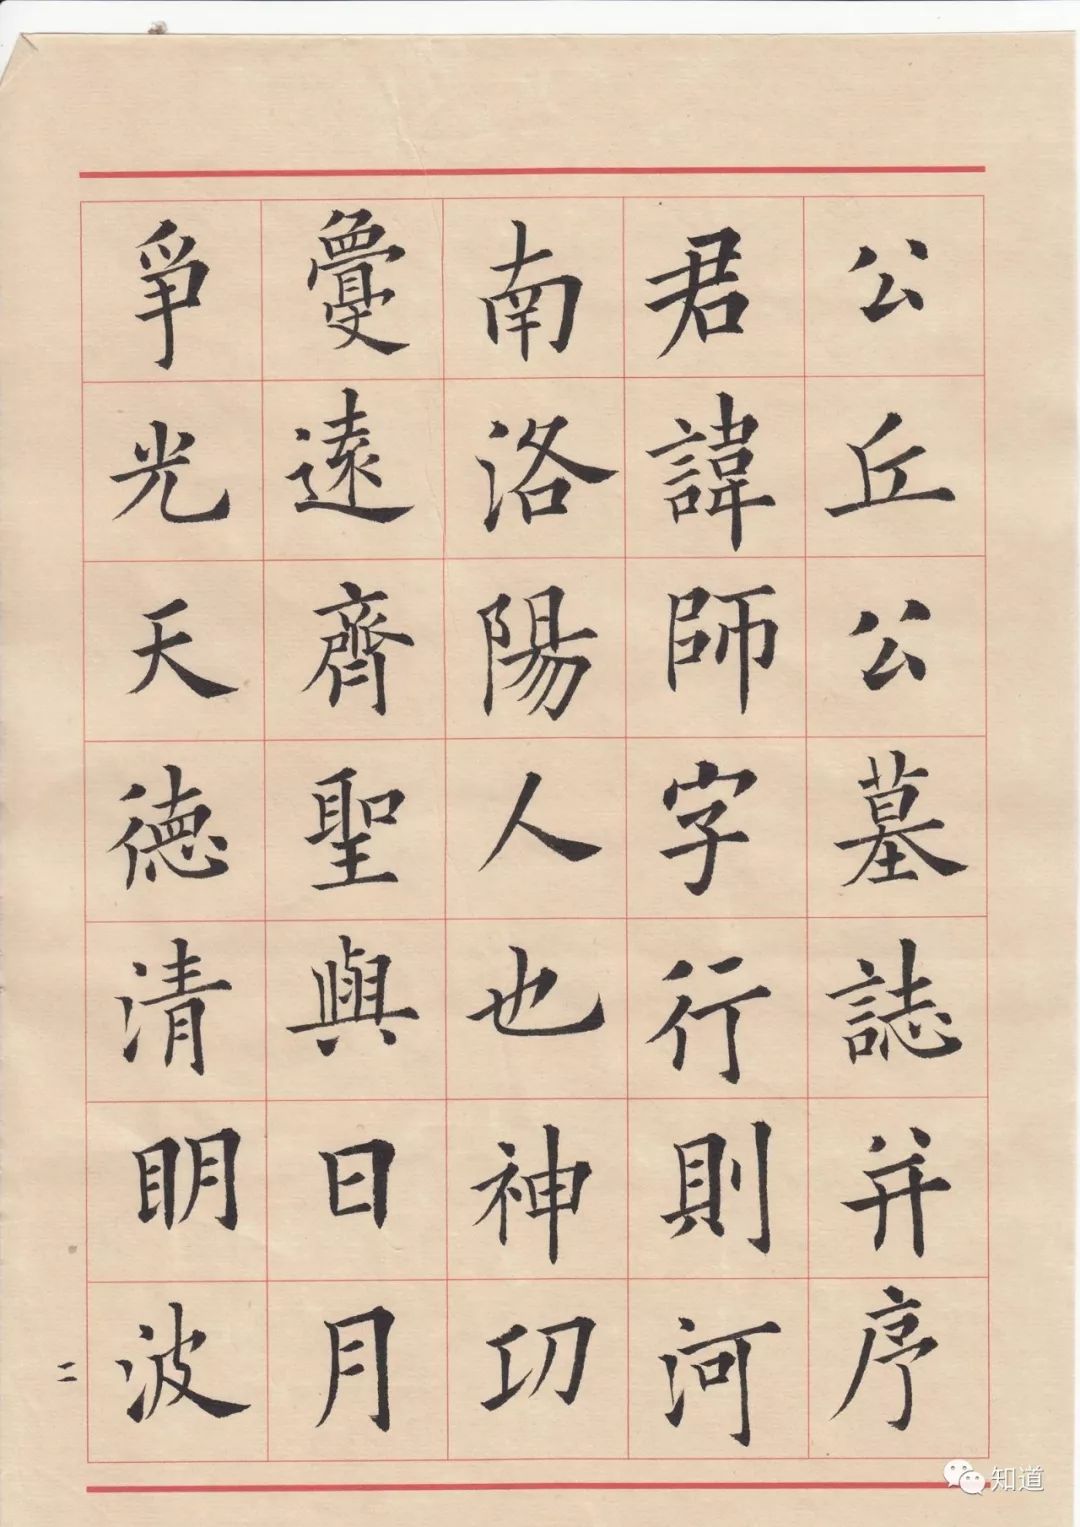 公丘公墓誌并序
君諱師字行則河
南洛陽人也神功
敻遠齊聖與日月
爭光天德清明波
二
知道